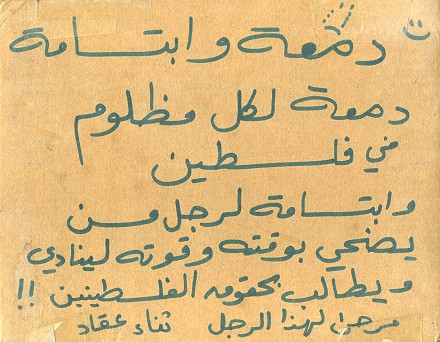 دمعة وابتسامة
دمعة لكل مظلوم
في فلسطين
وابتسامة لرجل من
يضحي بوقته وقوته لينادي
ويطالب بحقوق الفلسطينين !!
مرحى لهذا الرجل ثناء عقاد